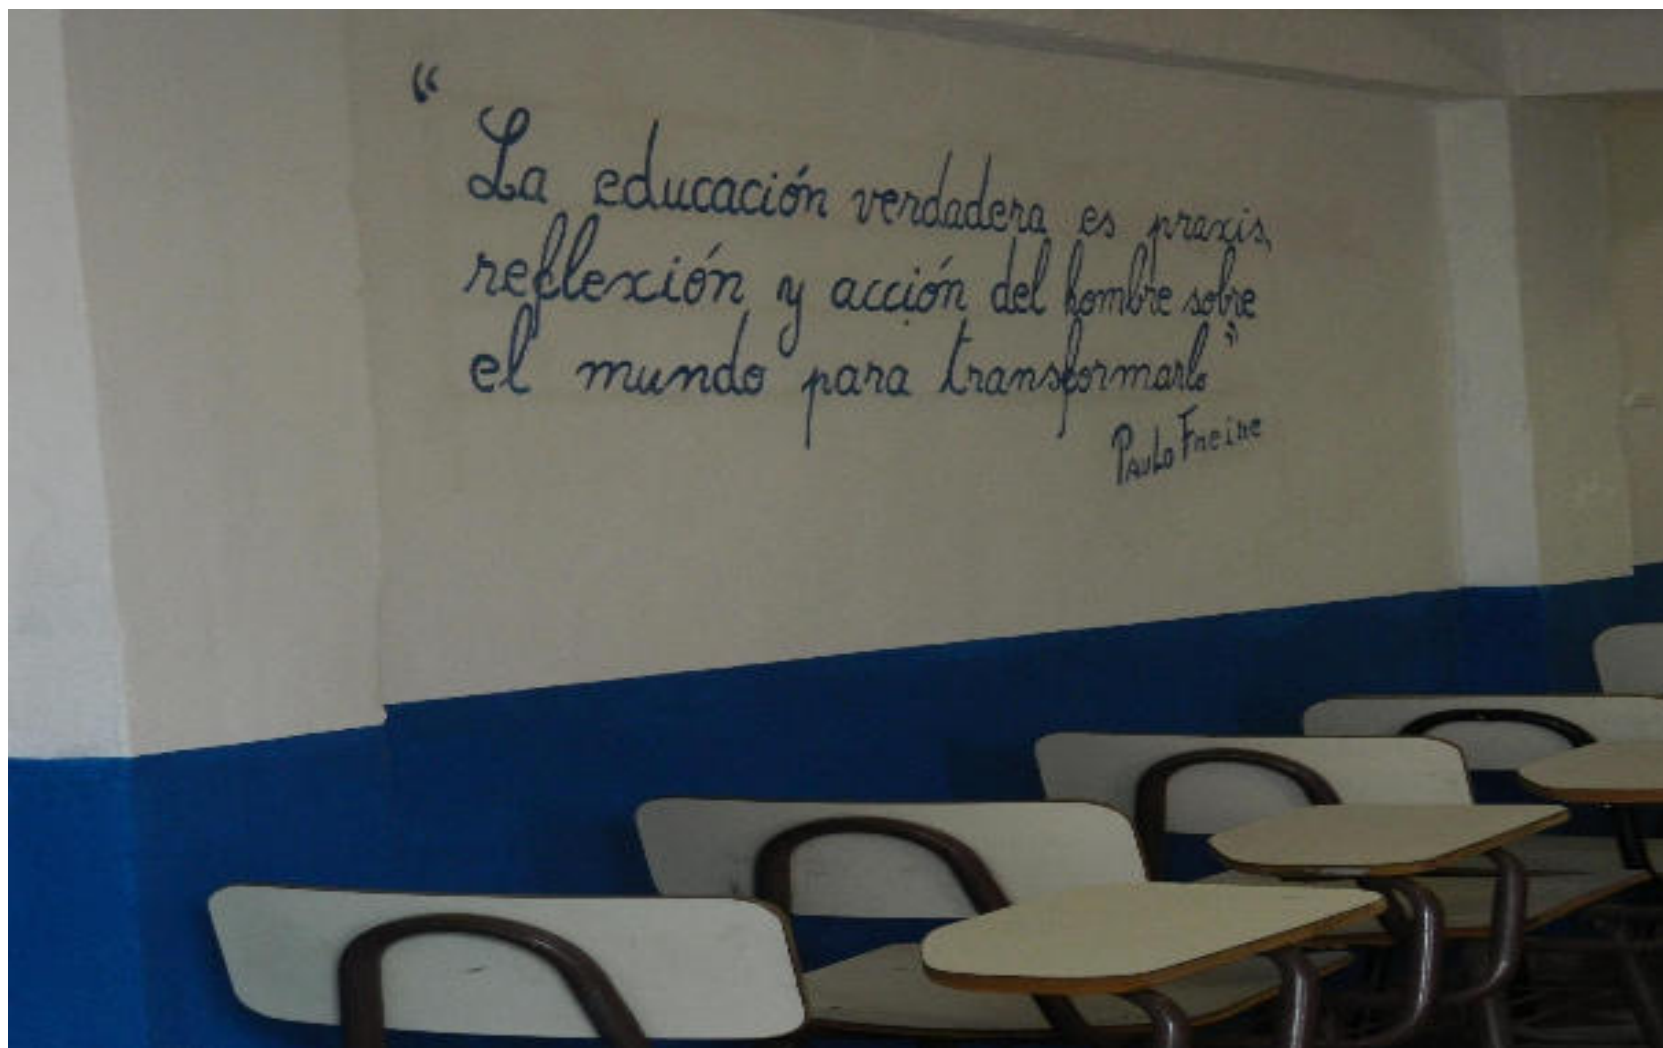 “ La educación verdadera es praxis,
reflexión y acción del hombre sobre
el mundo para transformarlo”
Paulo Freire